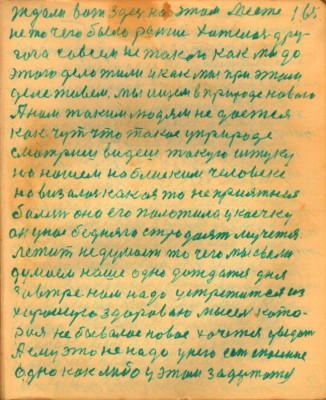 ждали вот здес на этом месте 165
не то чего было раньше хотелося дру-
гога совсем не такога как мы до
этого дело жили и как мы при этим
деле живем. мы ищем в природе нового
А нам таким людям не дается
как чут что такое у природе
смотриш видеш такую штуку
на нашем на близким человеке
навизалася какая то не приятная
болезн она его положила у коечку
он у нас бедняга страдает мучится
лежит не думает то чего мы с вами
думаем наше одно дождатся дня
завтре нам надо устретится из
хорошую здоровою мысля кото-
рая не бывалае новае хочется увидат
А ему это не надо у него сет спасение
одно как либо у этом задумоми